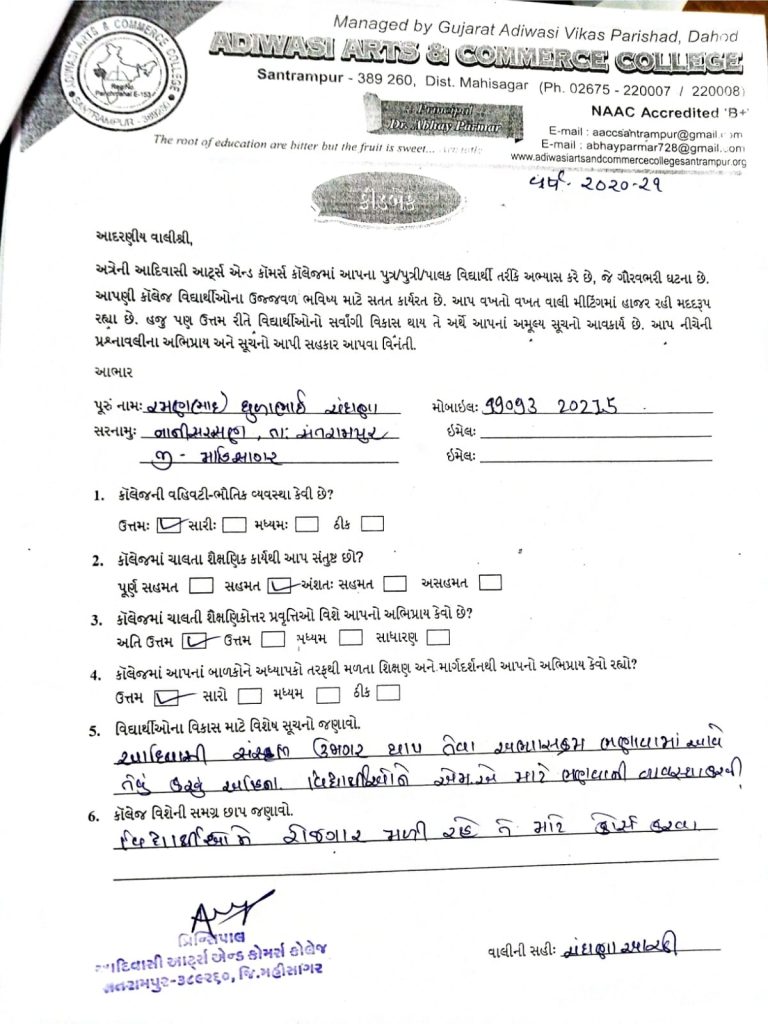 Managed by Gujarat Adiwasi Vikas Parishad, Dahod
ADIWASI ARTS & COMMERCE COLLEGE
Santrampur - 389 260, Dist. Mahisagar (Ph. 02675 - 220007 / 220008)
NAAC Accredited 'B+'
ADIWASI ARTS & COMMERCE COLLEGE
Reg No.
Panchmahal E-153
SANTRAMPUR - 389260
Principal
Dr. Abhay Parmar
E-mail : aaccsantrampur@gmail.com
E-mail : abhayparmar728@gmail.com
www.adiwasiartsandcommercecollegesantrampur.org
The root of education are bitter but the fruit is sweet...
વર્ષ- ૨૦૨૦-૨૧
ફીડબેક
આદરણીય વાલીશ્રી,
અત્રેની આદિવાસી આર્ટ્સ એન્ડ કૉમર્સ કૉલેજમાં આપના પુત્ર/પુત્રી/પાલક વિદ્યાર્થી તરીકે અભ્યાસ કરે છે, જે ગૌરવભરી ઘટના છે.
આપણી કૉલેજ વિદ્યાર્થીઓના ઉજ્જવળ ભવિષ્ય માટે સતત કાર્યરત છે. આપ વખતો વખત વાલી મીટિંગમાં હાજર રહી મદદરૂપ
રહ્યા છે. હજુ પણ ઉત્તમ રીતે વિદ્યાર્થીઓનો સર્વાંગી વિકાસ થાય તે અર્થે આપનાં અમૂલ્ય સૂચનો આવકાર્ય છે. આપ નીચેની
પ્રશ્નાવલીના અભિપ્રાય અને સૂચનો આપી સહકાર આપવા વિનંતી.
આભાર
પૂરું નામઃ રમણભાઇ ધુળાભાઇ સંઘાણા મોબાઇલઃ 99093 20275
સરનામુઃ નાનીસરસણ, તાઃ સંતરામપુર ઇમેલઃ
જી - મહિસાગર ઇમેલઃ
1. કૉલેજની વહિવટી-ભૌતિક વ્યવસ્થા કેવી છે?
ઉત્તમઃ સારીઃ મધ્યમઃ ઠીક
2. કૉલેજમાં ચાલતા શૈક્ષણિક કાર્યથી આપ સંતુષ્ટ છો?
પૂર્ણ સહમત સહમત અંશતઃ સહમત અસહમત
3. કૉલેજમાં ચાલતી શૈક્ષણિકોત્તર પ્રવૃત્તિઓ વિશે આપનો અભિપ્રાય કેવો છે?
અતિ ઉત્તમ ઉત્તમ મધ્યમ સાધારણ
4. કૉલેજમાં આપનાં બાળકોને અધ્યાપકો તરફથી મળતા શિક્ષણ અને માર્ગદર્શનથી આપનો અભિપ્રાય કેવો રહ્યો?
ઉત્તમ સારો મધ્યમ ઠીક
5. વિદ્યાર્થીઓના વિકાસ માટે વિશેષ સૂચનો જણાવો.
આદિવાસી ઉજાગર થાય તેવા અભ્યાસક્રમ ભણાવામાં આવે
તેવું કરવું વિદ્યાર્થીઓને એમ.એ માટે ભણવાની વ્યવસ્થા કરવી
6. કૉલેજ વિશેની સમગ્ર છાપ જણાવો.
વિદ્યાર્થીઓને રોજગાર મળી રહે તે માટે કોર્સ કરવા
પ્રિન્સિપાલ
આદિવાસી આર્ટ્સ એન્ડ કોમર્સ કોલેજ
સંતરામપુર-૩૮૯૨૬૦, જિ.મહીસાગર
વાલીની સહીઃ